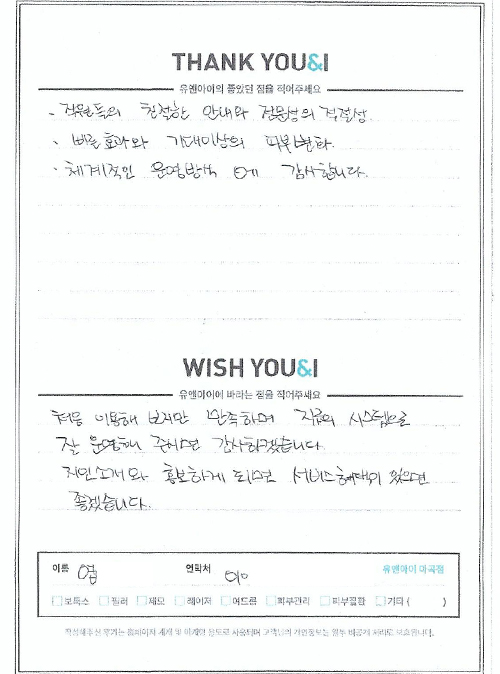 THANK YOU&I
유앤아이의 좋았던 점을 적어주세요
· 직원들의 친절한 안내와 전문성의 적절성
· 빠른 효과와 기대이상의 피부변화
· 체계적인 운영방식 에 감사합니다.
WISH YOU&I
유앤아이에 바라는 점을 적어주세요
처음 이용해 보지만 만족하며 지금의 시스템으로
잘 운영해 주시면 감사하겠습니다.
지인소개와 홍보하게 되면 서비스혜택이 있으면
좋겠습니다.
이름 연락처 유앤아이 마곡점
보톡스 필러 제모 레이저 여드름 피부관리 피부질환 기타 ( )
작성해주신 후기는 홈페이지 게재 및 마케팅 용도로 사용되며 고객님의 개인정보는 일부 비공개 처리로 보호됩니다.